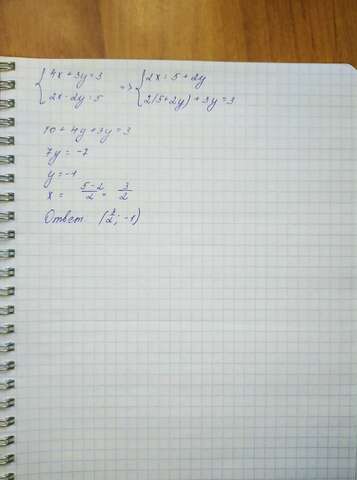 {4x+3y=3 => {2x=5+2y
{2x-2y=5 {2(5+2y)+3y=3
10+4y+3y=3
7y=-7
y=-1
x= 5-2/2 = 3/2
Ответ (; -1)